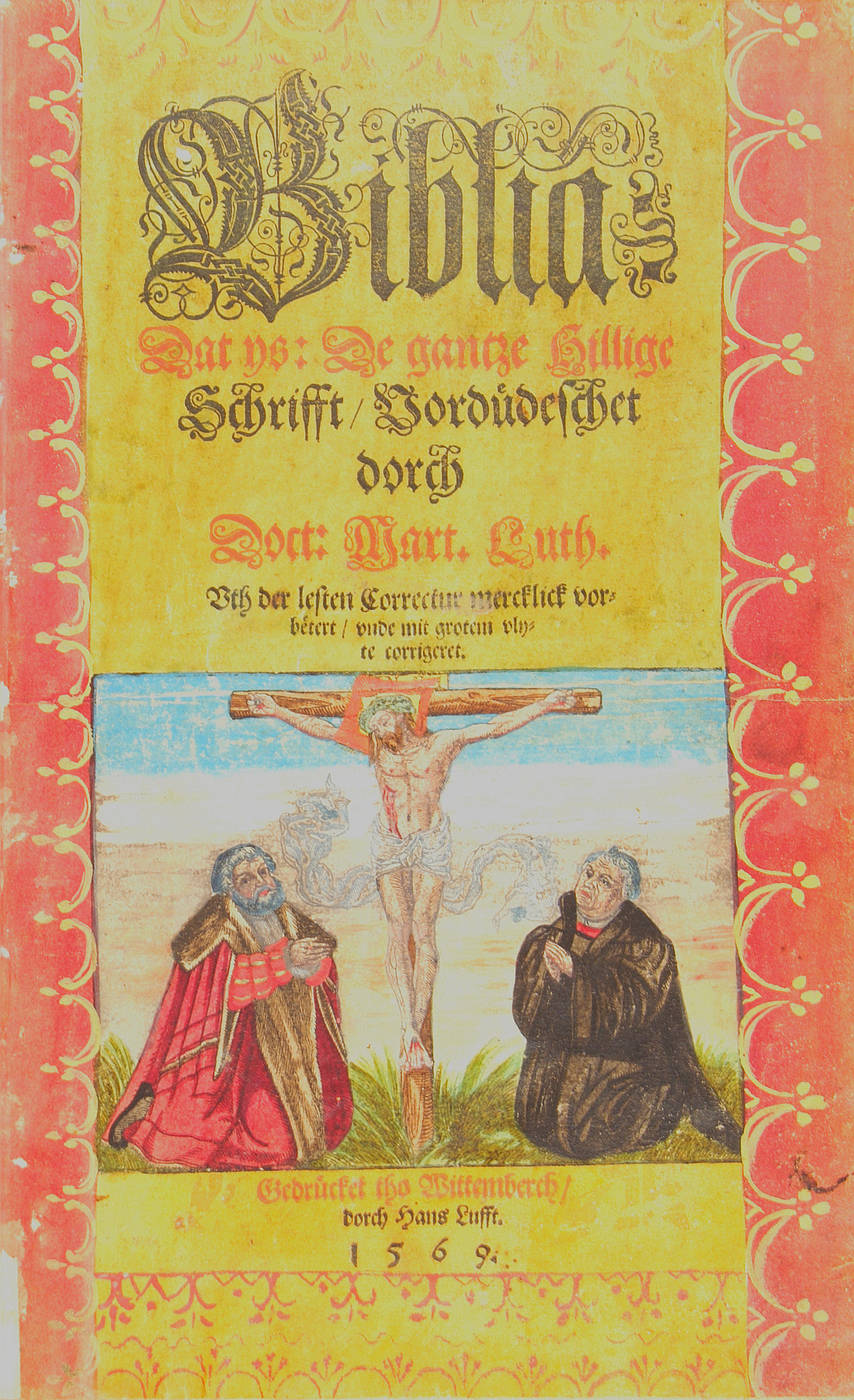 Biblia
Dat ys: De gantze Hillige
Schrifft / Vordüdeschet
dorch
Doct: Mart. Luth.
Vth der lesten Correctur mercklick vor⸗
bêtert / vnde mit grotem vly⸗
te corrigeret.
Gedrücket tho Wittemberch /
dorch Hans Lufft.
1569.